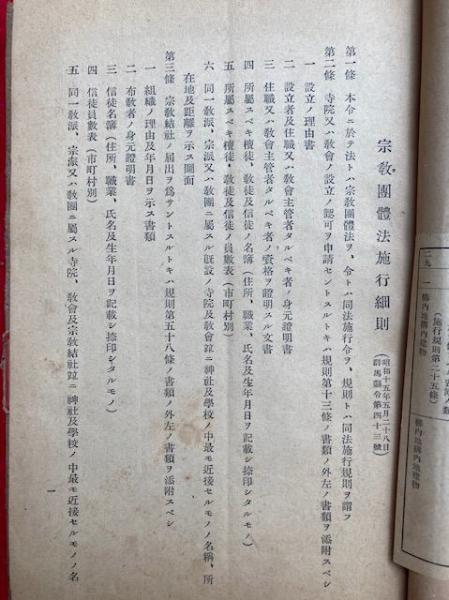 宗敎團體法施行細則
(昭和十五年五月二十八日
群馬縣令第四十三號)
第一條 本令ニ於テ法トハ宗敎團體法ヲ、令トハ同法施行令ヲ、規則トハ同法施行規則ヲ謂フ
第二條 寺院又ハ敎會ノ設立ノ認可ヲ申請セントスルトキハ規則第十三條ノ書類ノ外左ノ書類ヲ添附スベシ
一 設立ノ理由書
二 設立者及住職又ハ敎會主管者タルベキ者ノ身元證明書
三 住職又ハ敎會主管者タルベキ者ノ資格ヲ證明スル文書
四 所屬スベキ檀徒、敎徒及信徒ノ名簿(住所、職業、氏名及生年月日ヲ記載シ捺印シタルモノ)
五 所屬スベキ檀徒、敎徒及信徒ノ員數表(市町村別)
六 同一敎派、宗派又ハ敎團ニ屬スル旣設ノ寺院及敎會竝ニ神社及學校ノ中最モ近接セルモノノ名稱、所
在地及距離ヲ示ス圖面
第三條 宗敎結社ノ届出ヲ爲サントスルトキハ規則第五十八條ノ書類ノ外左ノ書類ヲ添附スベシ
一 組織ノ理由及年月日ヲ示ス書類
二 布敎者ノ身元證明書
三 信徒名簿(住所、職業、氏名及生年月日ヲ記載シ捺印シタルモノ)
四 信徒員數表(市町村別)
五 同一敎派、宗派又ハ敎團ニ屬スル寺院、敎會及宗敎結社竝ニ神社及學校ノ中最モ近接セルモノノ名
一
(施行規則第二十五條)
二九
一 構內地構內建物
構內地建物